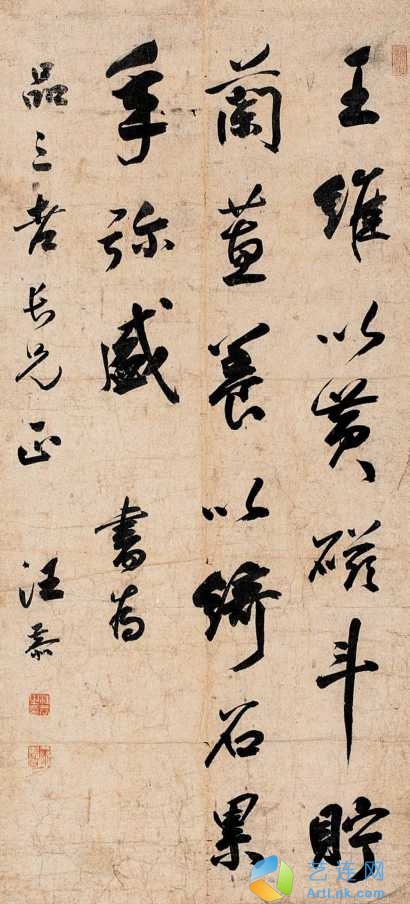 王維以黃磁斗貯
蘭蕙養以綺石累
年弥盛 書為
品三老長兄正 汪恭
艺连网
ArtLink.com